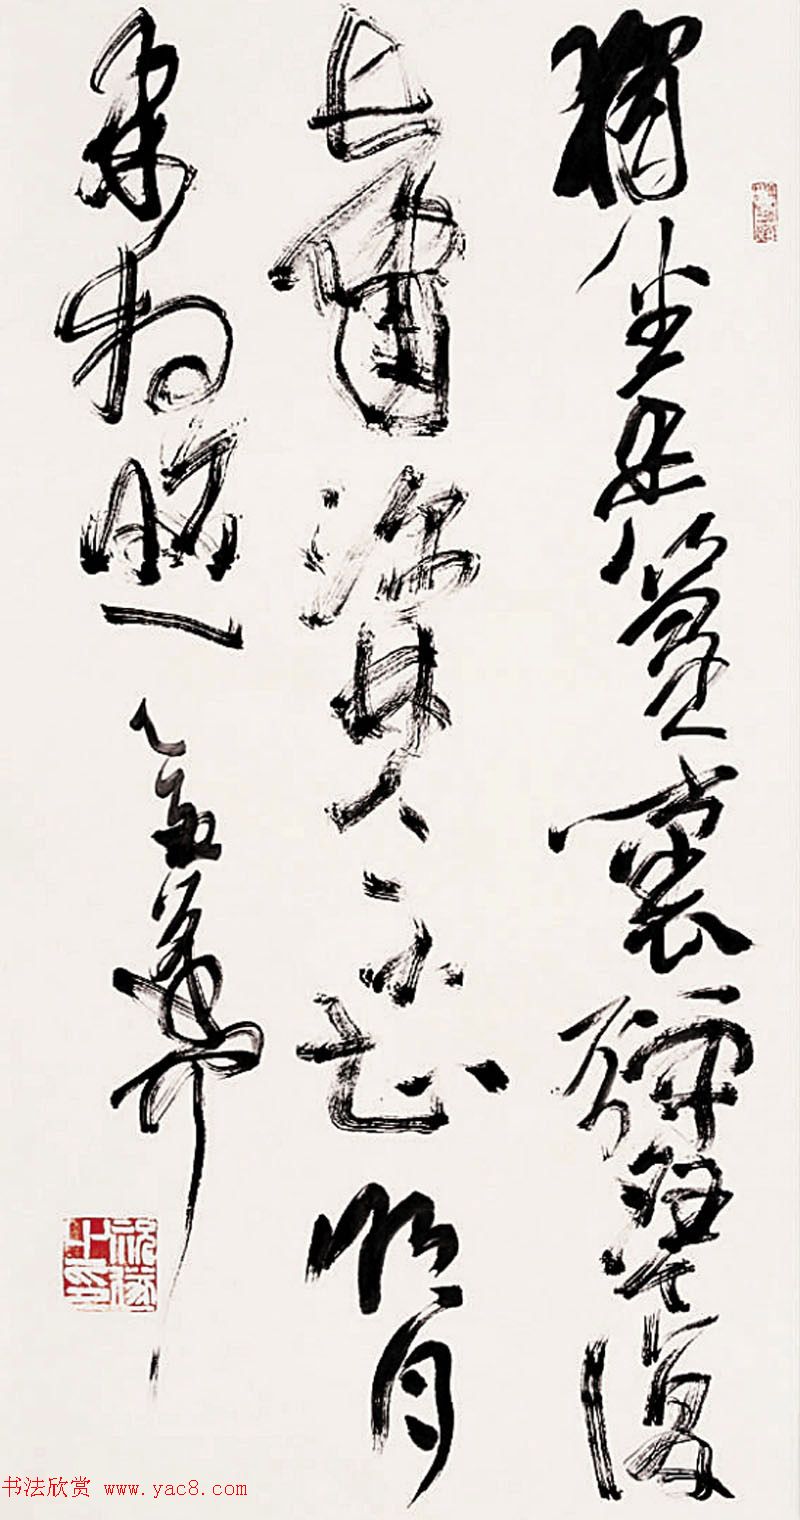 獨坐幽篁裏彈琴復
長嘯深林人不知明月
來相照 乙亥
祝遂之印
书法欣赏 www.yac8.com